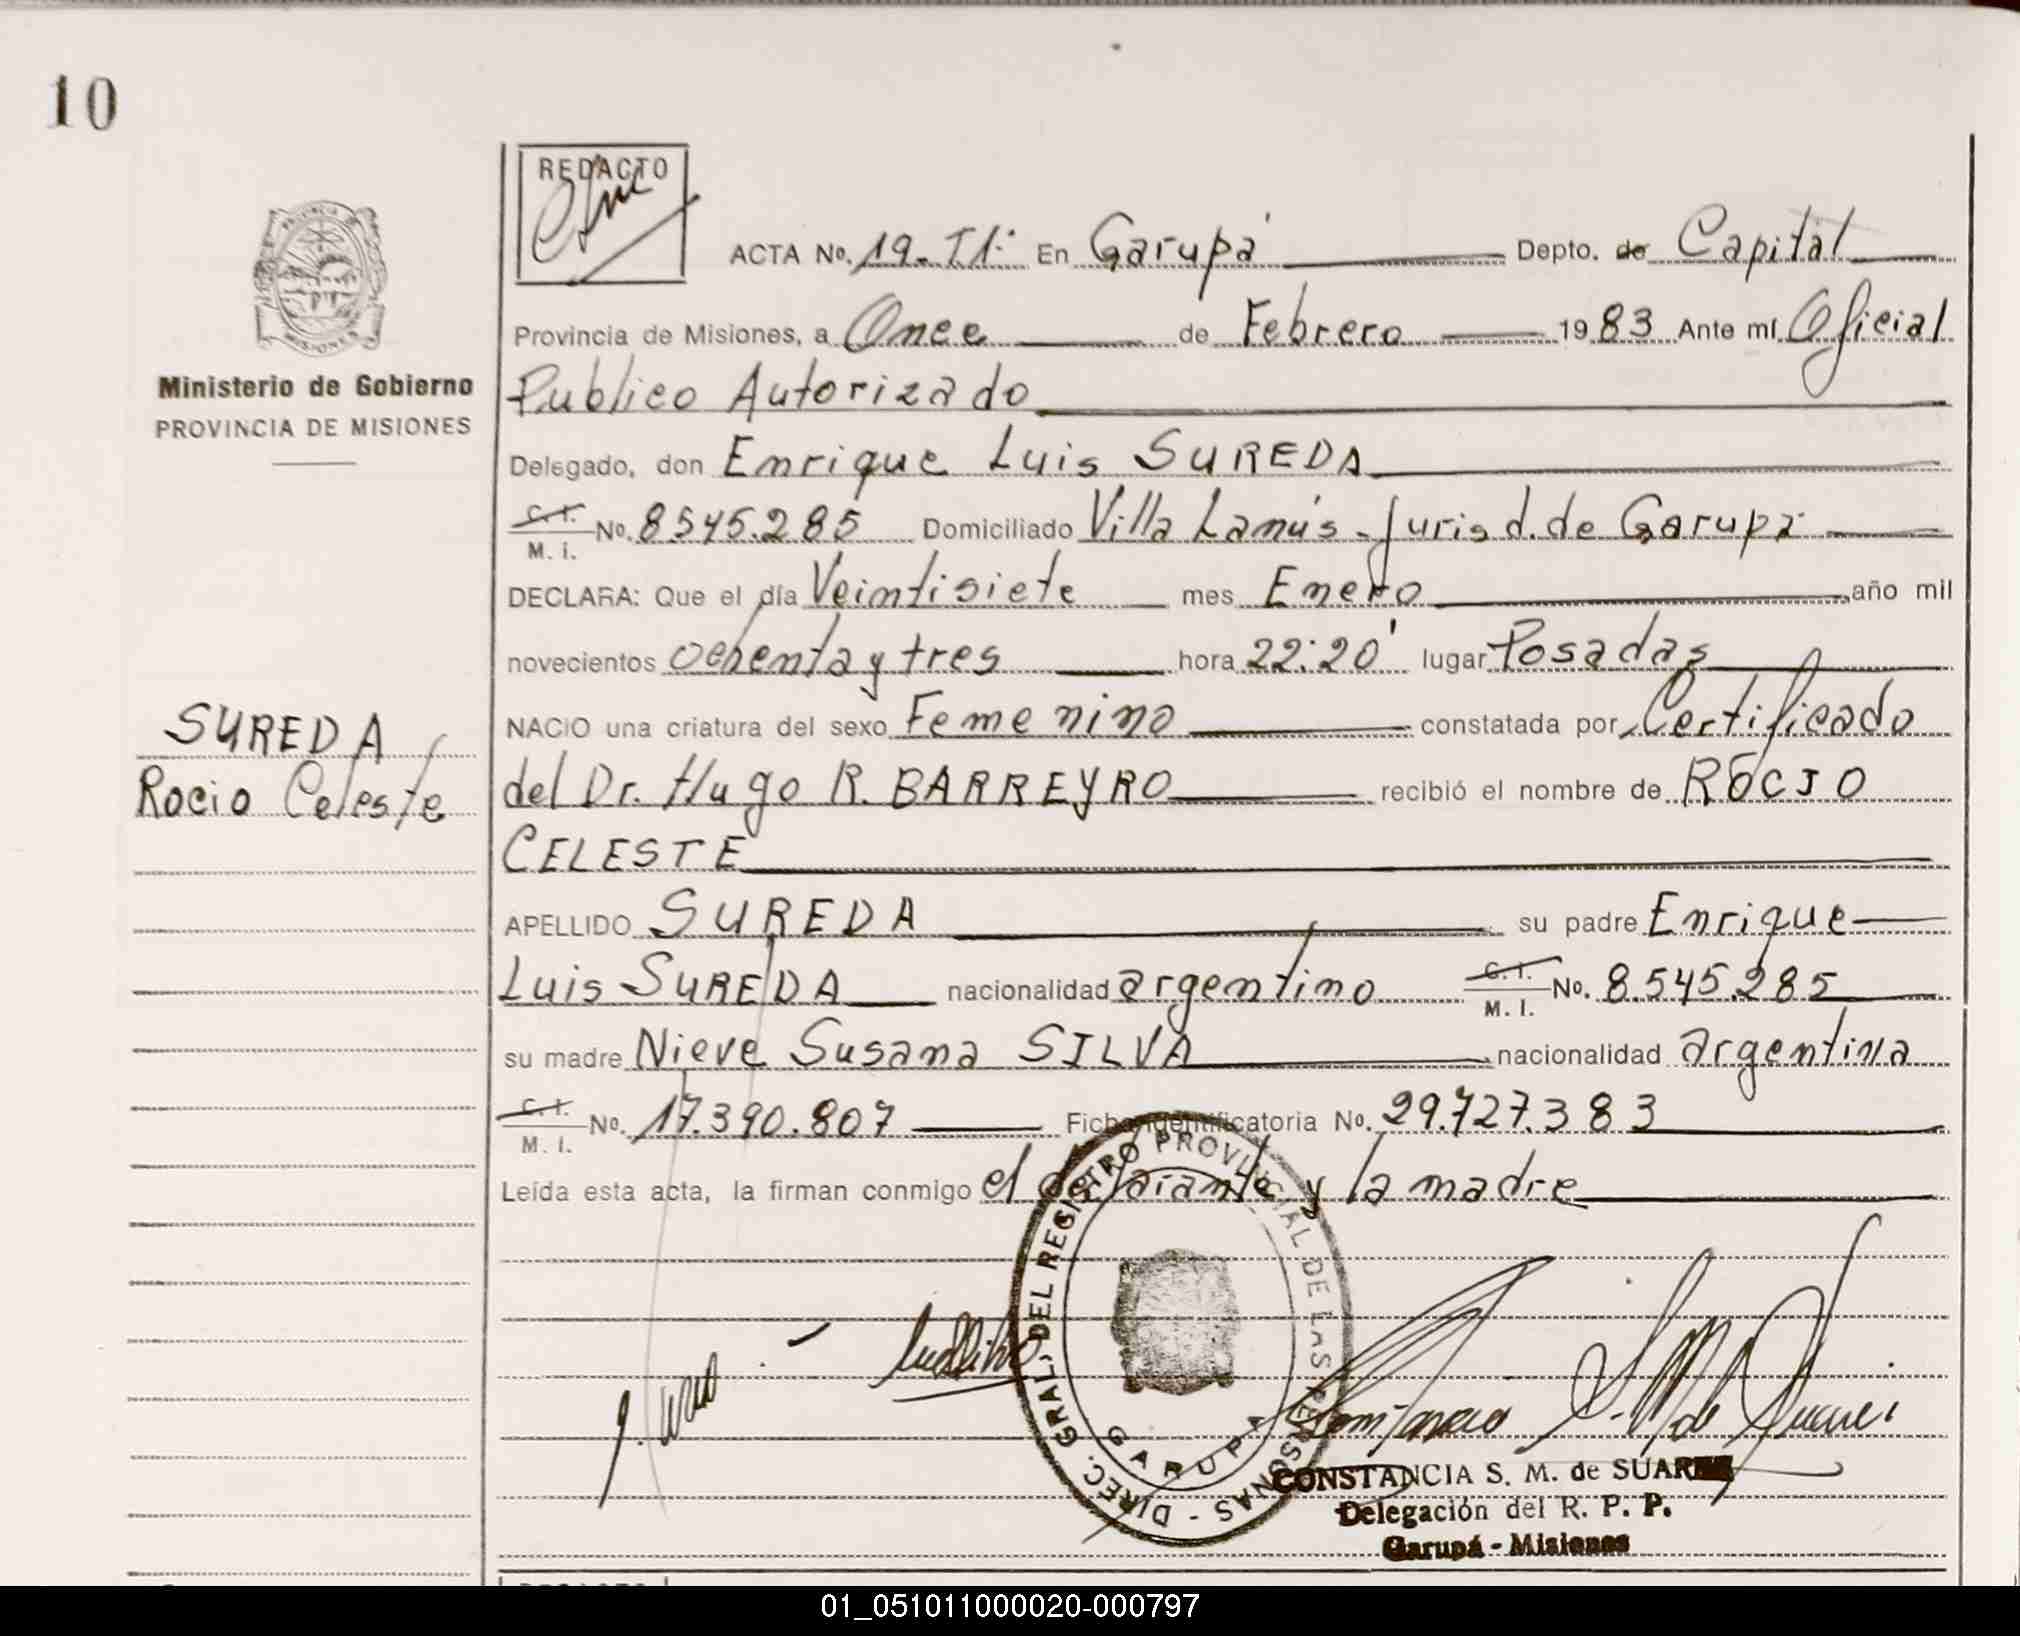 10
REDACTO
ACTA No. 19-TI: En Garupá Depto. de Capital
Provincia de Misiones, a Once de Febrero 1983 Ante mí Oficial
Publico Autorizado
Delegado, don Enrique Luis SUREDA
C. I. M. i. No. 8545.285 Domiciliado Villa Lanús - Jurisd. de Garupá
DECLARA: Que el día Veintisiete mes Enero año mil
novecientos ochenta y tres hora 22:20' lugar Posadas
NACIO una criatura del sexo Femenino constatada por Certificado
del Dr. Hugo R. BARREYRO recibió el nombre de ROCIO
CELESTE
APELLIDO SUREDA su padre Enrique
Luis SUREDA nacionalidad argentino C. I. M. I. No. 8.545.285
su madre Nieve Susana SILVA nacionalidad argentina
C. I. M. I. No. 17.390.807 Ficha identificatoria No. 29.727.383
Leída esta acta, la firman conmigo el declarante y la madre
Ministerio de Gobierno
PROVINCIA DE MISIONES
SUREDA
Rocio Celeste
DIREC. GRAL. DEL REGISTRO PROVINCIAL DE LAS PERSONAS -
GARUPA
CONSTANCIA S. M. de SUAREZ
Delegación del R. P. P.
Garupá - Misiones
01_051011000020-000797